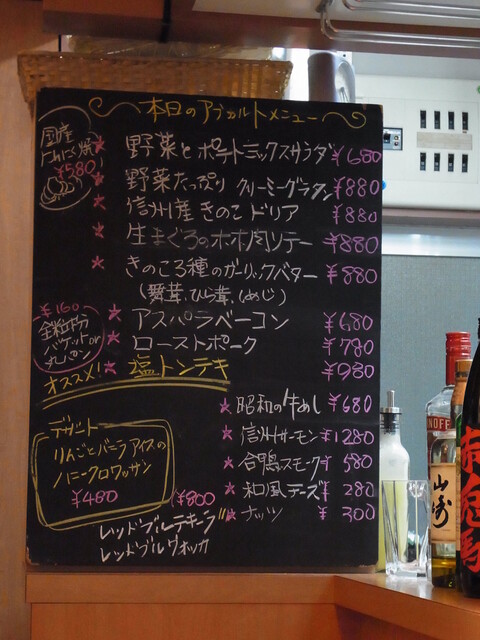 本日のアラカルトメニュー
国産
にんにく焼
¥580
野菜とポテトミックスサラダ ¥680
野菜たっぷりクリーミーグラタン ¥880
信州産きのこドリア ¥880
生まぐろのホホ肉ソテー ¥880
きのこ3種のガーリックバター ¥880
(舞茸、ひら茸、しめじ)
¥160
全粒粉
バケットor
丸パン
アスパラベーコン ¥680
ローストポーク ¥780
オススメ! 塩トンテキ ¥980
昭和の牛めし ¥680
信州サーモン ¥1280
合鴨スモーク ¥580
和風チーズ ¥280
ナッツ ¥300
デザート
りんごとバニラアイスの
ハニークロワッサン
¥480
(¥800
レッドブルテキーラ
レッドブルウォッカ
NOFF
山崎
赤兎馬